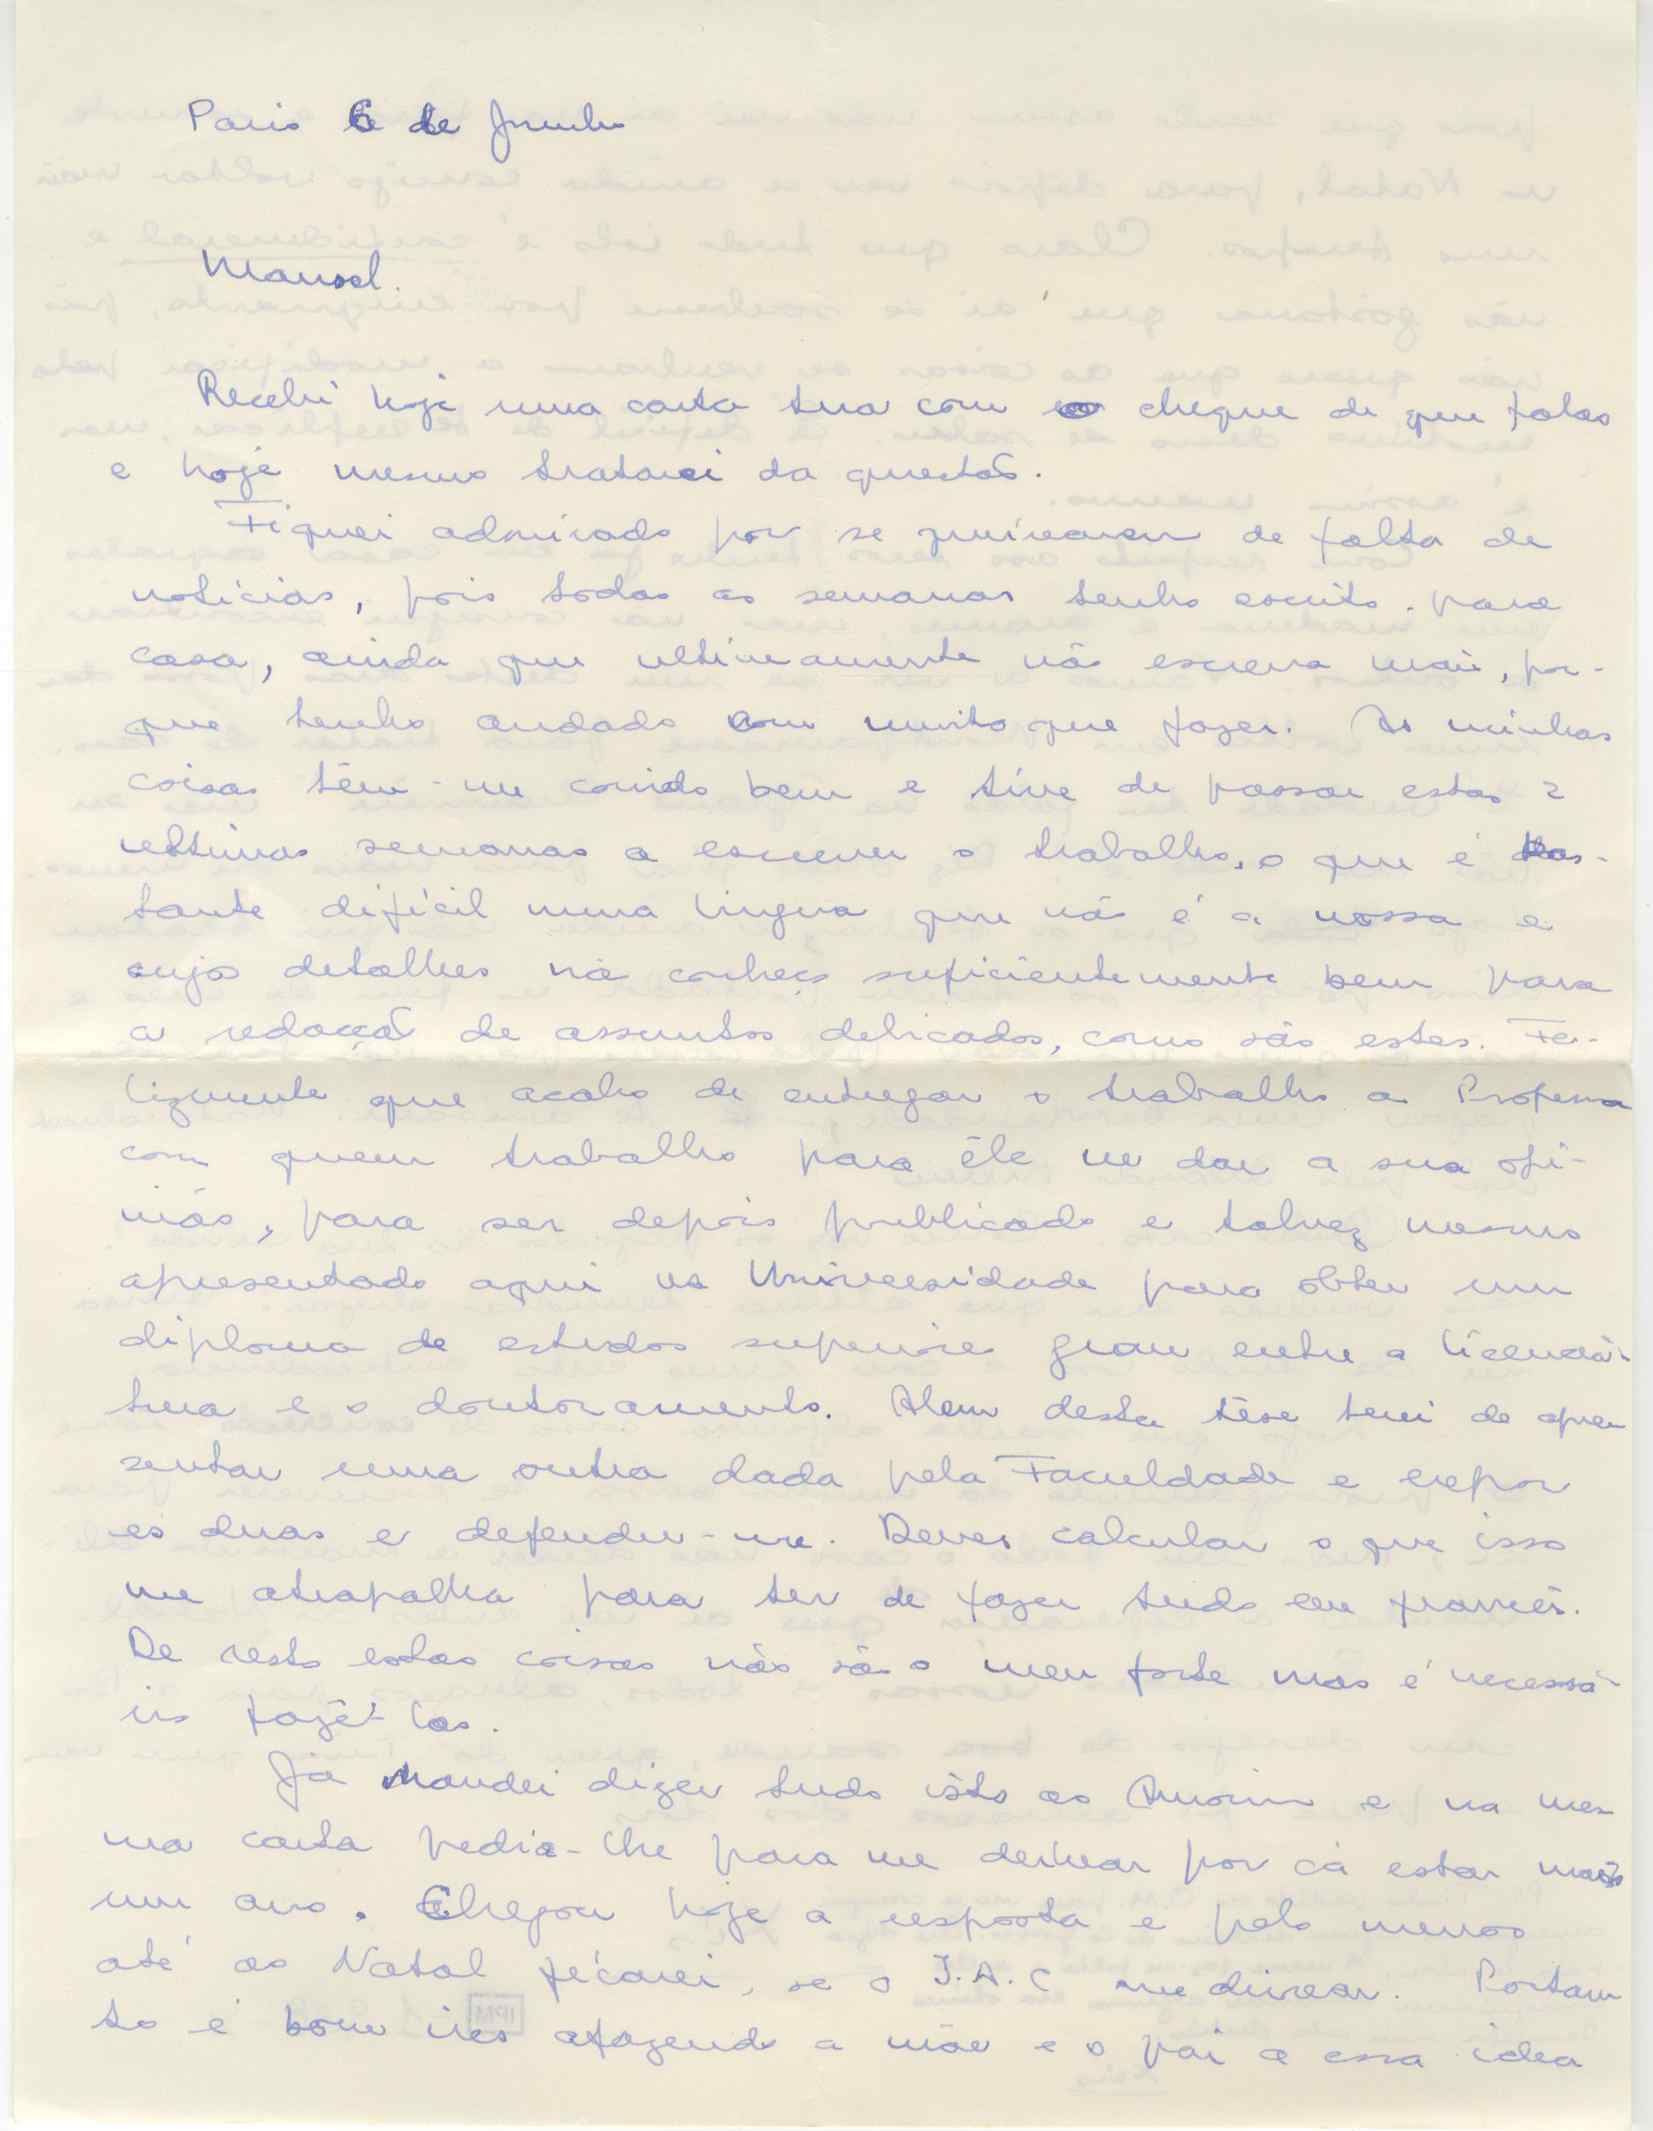 Paris 6 de Junho
Manuel.
Recebi hoje uma carta tua com o cheque de que falas
e hoje mesmo tratarei da questão.
Fiquei admirado por se queixarem de falta de
noticias, pois todas as semanas tenho escrito para
casa, ainda que ultimamente não escreva mais, por-
que tenho andado com muito que fazer. As minhas
coisas têm-me corrido bem e tive de passar estas 2
ultimas semanas a escrever o trabalho, o que é bas-
tante difícil numa lingua que não é a nossa e
cujos detalhes não conheço suficientemente bem para
a redacção de assuntos delicados, como são estes. Fe-
lizmente que acabo de entregar o trabalho ao Professor
com quem trabalho para êle me dar a sua opi-
nião, para ser depois publicado e talvez mesmo
apresentado aqui na Universidade para obter um
diploma de estudos superiores grau entre a licencia-
tura e o doutoramento. Alem desta têse terei de apre
sentar uma outra dada pela Faculdade e expor
as duas e defender-me. Deves calcular o que isso
me atrapalha para ter de fazer tudo em francês.
De resto estas coisas não são o meu forte mas é necessá-
rio fazê-las.
Já mandei dizer tudo isto ao Amorim e na mes
ma carta pedia-lhe para me deixar por cá estar mais
um ano. Chegou hoje a resposta e pelo menos
até ao Natal ficarei, se o I.A.C me deixar. Portan
to é bom ires afazendo a mãe e o pai a essa idea